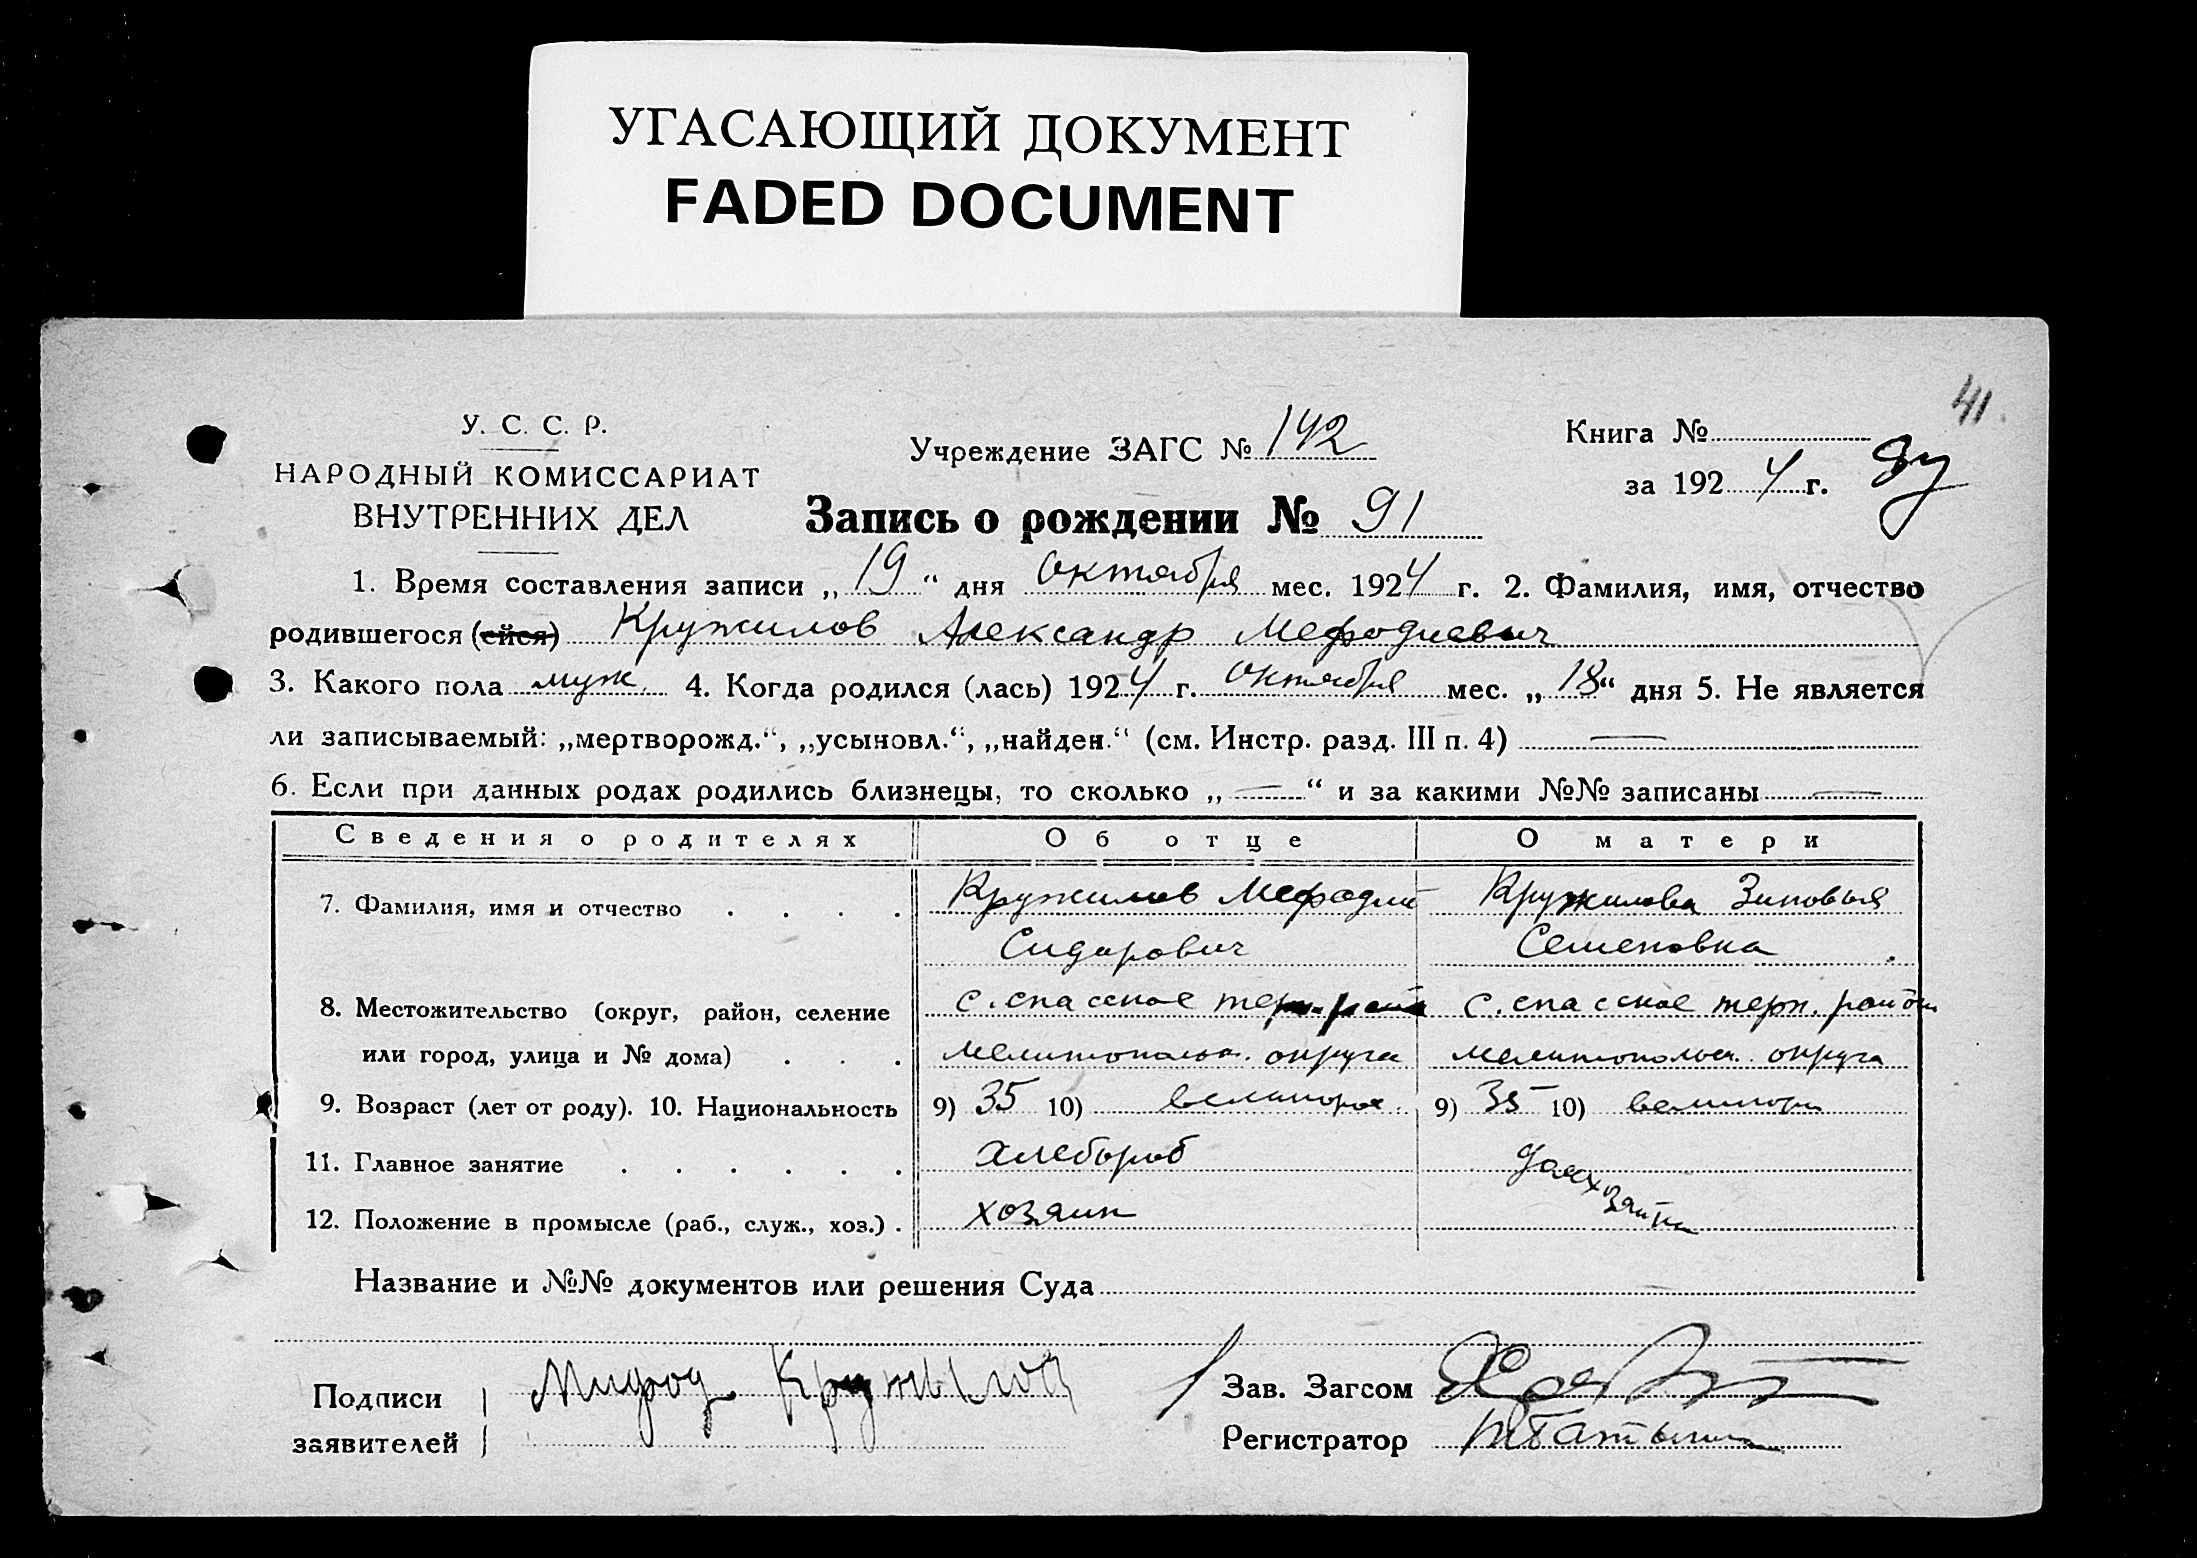 УГАСАЮЩИЙ ДОКУМЕНТ
FADED DOCUMENT
41
У. С. С. Р.
НАРОДНЫЙ КОМИССАРИАТ
ВНУТРЕННИХ ДЕЛ
Учреждение ЗАГС № 142
Книга №
за 1924 г.
Запись о рождении № 91
1. Время составления записи „19“ дня октября мес. 1924 г. 2. Фамилия, имя, отчество
родившегося (ейся) Кружилов Александр Мефодиевич
3. Какого пола муж. 4. Когда родился (лась) 1924 г. октября мес. „18“ дня 5. Не является
ли записываемый: „мертворожд.“, „усыновл.“, „найден.“ (см. Инстр. разд. III п. 4) —
6. Если при данных родах родились близнецы, то сколько „—“ и за какими №№ записаны —
Сведения о родителях Об отце О матери
7. Фамилия, имя и отчество . . . . Кружилов Мефодий Кружилова Зиновья
Сидорович Семеновна
8. Местожительство (округ, район, селение с. спасское терп. район с. спасское терп. район
или город, улица и № дома) . . . мелитопольск. округа мелитопольск. округа
9. Возраст (лет от роду). 10. Национальность 9) 35 10) великорос. 9) 35 10) великор
11. Главное занятие . . . . . . Хлебороб домхозяйка
12. Положение в промысле (раб., служ., хоз.) . хозяин
Название и №№ документов или решения Суда
Подписи Мифод Кружилов Зав. Загсом
заявителей Регистратор